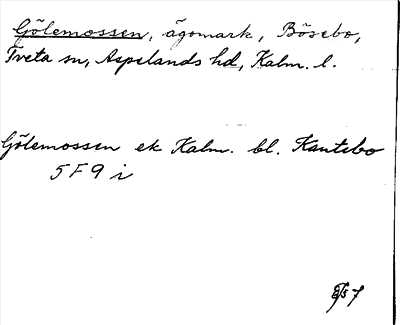 Gölemossen, ägomark, Bösebo,
Tveta sn, Aspelands hd, Kalm. l.
Gölemossen ek Kalm. bl. Kantebo
5 F 9 i